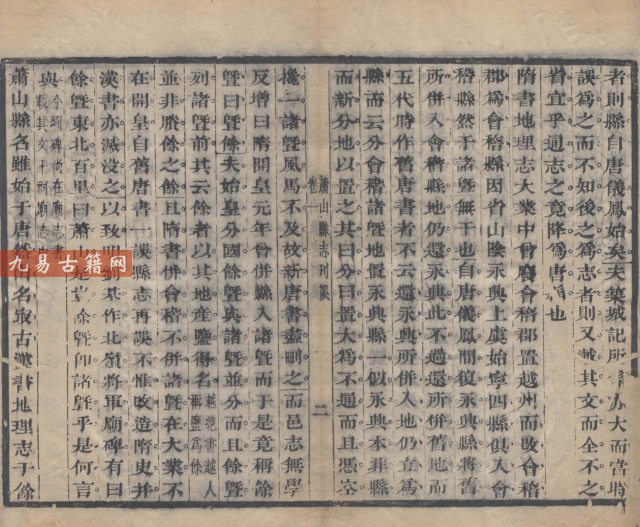 者則縣自唐儀鳳始矣夫築城記所 大而當增
誤為之而不知後之為志者則又 其文而全不之
省宜乎通志之竟降為唐 也
隋書地理志大業中曾廢會稽郡置越州而改會稽
郡為會稽縣因省山陰永興上虞始寧四縣俱入會
稽縣然于諸暨無干也自唐儀鳳間復永興縣將舊
所併入會稽縣地仍還永興此不過還所併舊地而
五代時作舊唐書者不云還永興所併入地仍立為
縣而云分會稽諸暨地置永興縣一似永興本非縣
而新分地以置之其曰分曰置大為不通而且憑空
蕭山縣志刊誤
卷一
二
攙一諸暨風馬不及故新唐書盡刪之而邑志無學
反增曰隋開皇元年曾併縣入諸暨而于是竟稱餘
暨曰暨餘夫始皇分國餘暨與諸暨並分而且餘暨
列諸暨前其云餘者以其地產鹽得名越絕書越人稱鹽為餘
並非賸餘之餘且隋書併會稽不併諸暨在大業不
在開皇自舊唐書一誤縣志再誤不惟改造隋史并
漢書亦滅沒之以致明 基作北嶺將軍廟碑有曰
餘暨東北百里曰蕭山 餘暨即諸暨乎是何言
與今 碑尚在廟志 載其文不 廟志
蕭山縣名雖始于唐 名取古漢書地理志于餘
九易古籍网